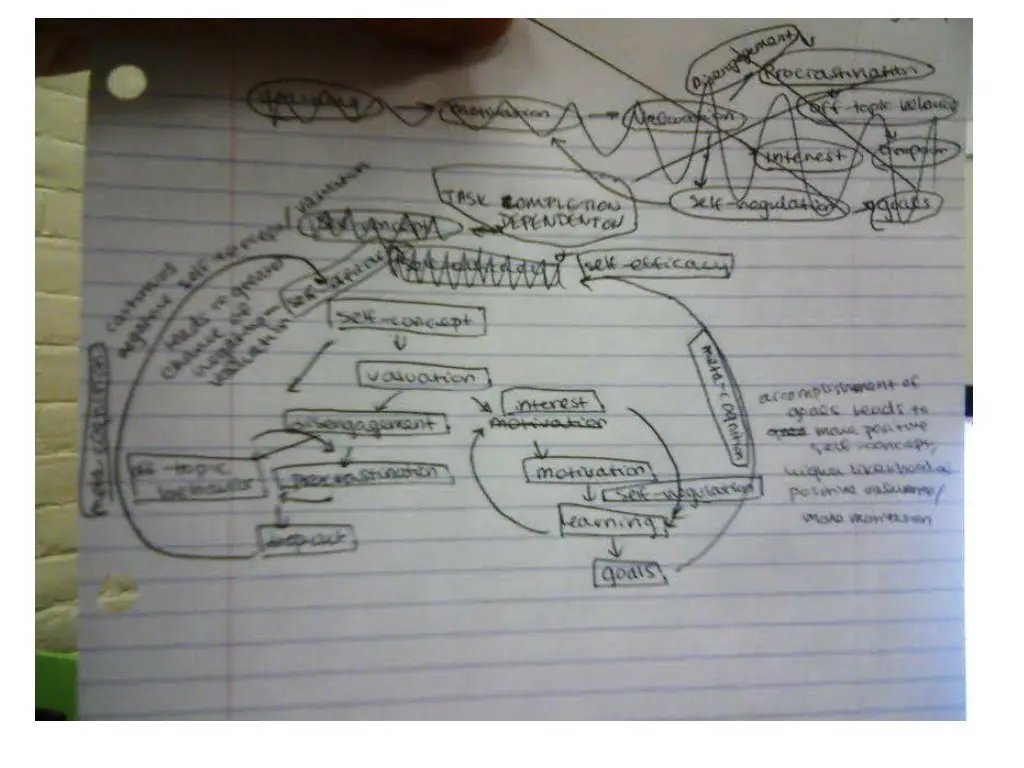 Disengagement
Procrastination
motivation
Valuation
off-topic behavior
interest
self-regulation
goals
TASK COMPLETION
DEPENDENT ON
self-efficacy
self-concept
valuation
interest
disengagement
motivation
off-topic
behavior
procrastination
motivation
self-regulation
learning
goals
meta-cognition
continues
negative self-concept/valuation
leads to greater
chance of
negative
valuation
meta-cognition
accomplishment of
goals leads to
more positive
self-concept,
higher likelihood of
positive valuation/
more motivation